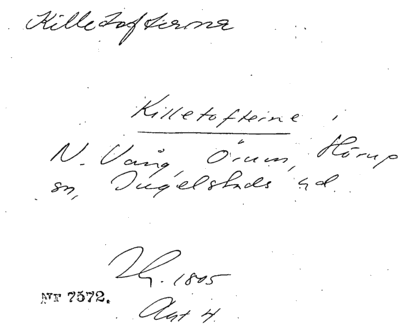 Killetofterna
Killetofterne i
N. Vång, Örum, Hörup
sn, Ingelstads hd
Ih. 1805
Nr 7572.
Akt 4